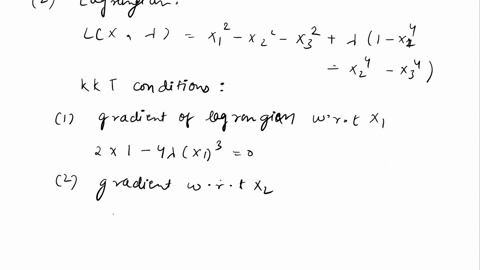 (2) Lagrangian:
L(X, λ) = x₁² - x₂² - x₃² + λ (1 - x₁⁴
- x₂⁴ - x₃⁴)
KKT conditions:
(1) gradient of lagrangian w.r.t x₁
2x1 - 4λ(x1)³ = 0
(2) gradient w.r.t x₂